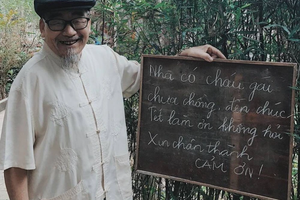 Nhà có cháu gái
chưa chồng, đến chúc
Tết làm ơn không hỏi
Xin chân thành
CẢM ƠN!